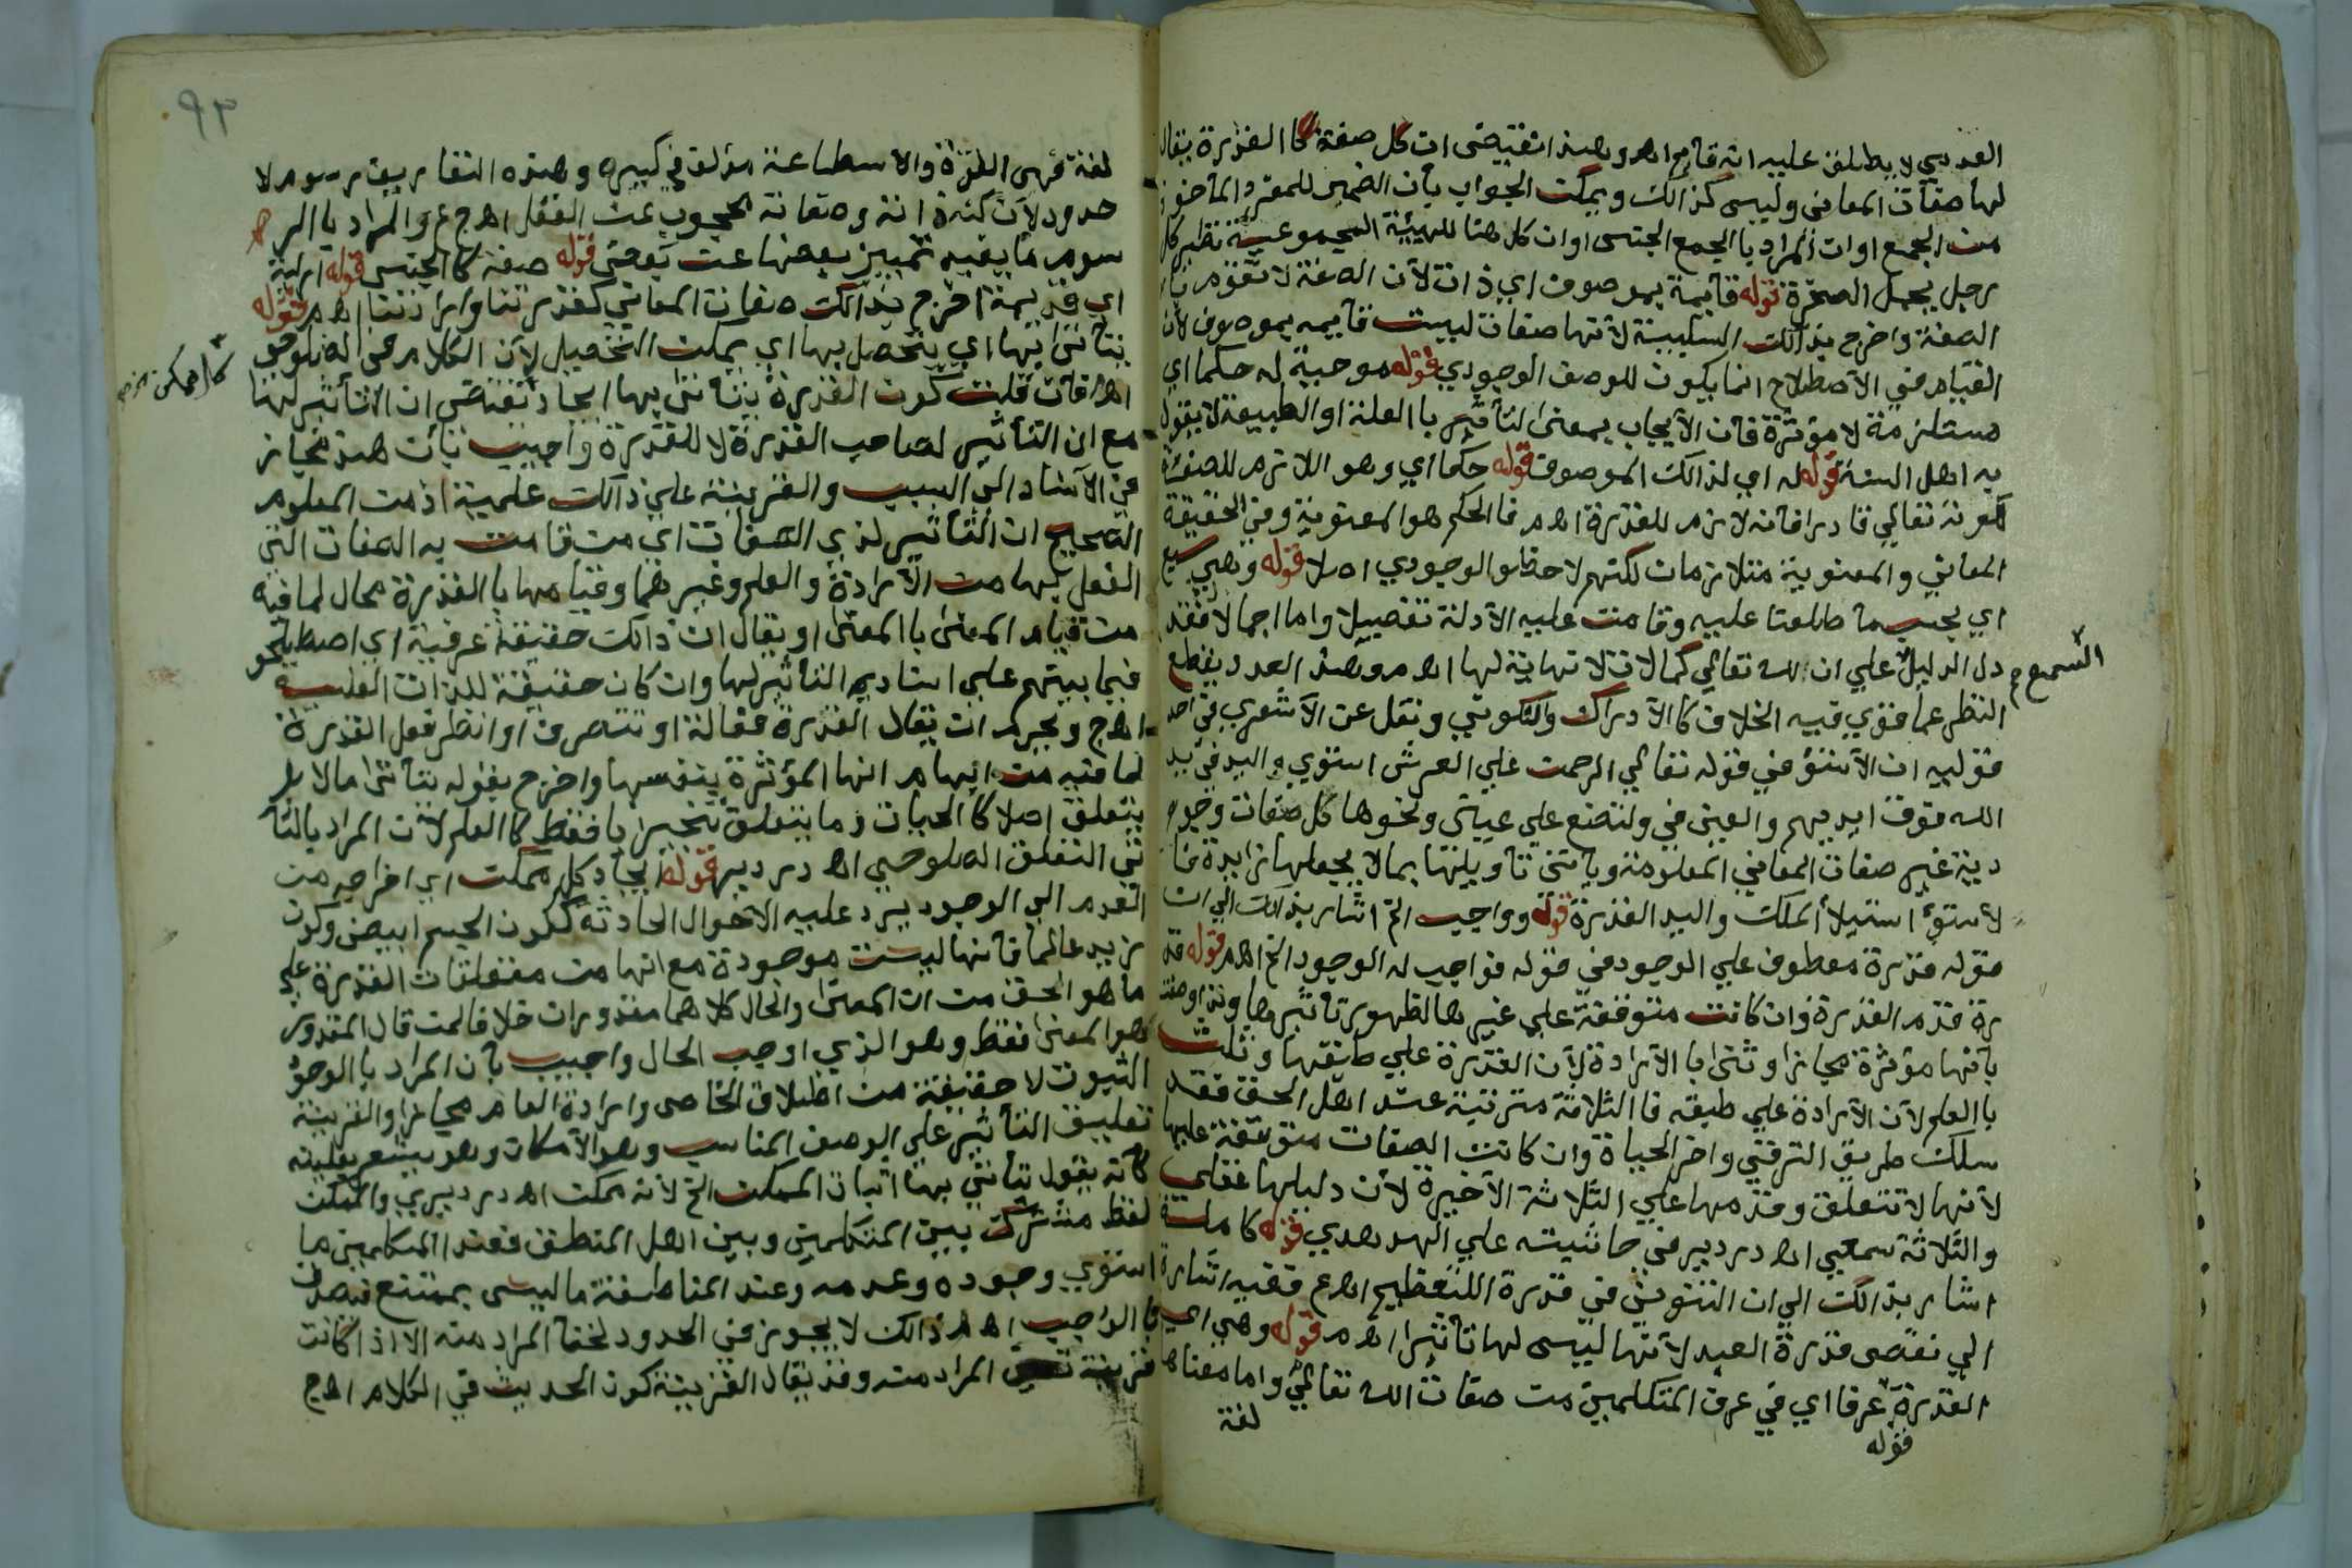 العدمي لا يطلق عليه انه قائم اهـ وهذا تقيضى ان كل صفة كا القدرة يقال
لها صفات المعاني وليس كذالك ويمكن الجواب بأن الضمير للمفرد المأخوذ
من الجمع او ان المراد با الجمع الجنس او ان كل هنا للهيئة المجموعية نظير كل
رجل يحمل الصخرة قوله قائمة بموصوف اي ذات لأن الصفة لا تقوم
الصفة واخرج بذالك السلبية لأنها صفات ليست قائمه بموصوف لأن
القيام في الأصطلاح انما يكون للوصف الوجودي قوله موجبة له حكما اي
مستلزمة لا مؤثرة فان الأيجاب بمعنى التأثير با العلة او الطبيعة لا يقول
به اهل السنة قوله له اي لذالك الموصوف قوله حكما اي وهو اللازم للصفة
كمونه تعالي قادرا فانه لازم للقدرة اهـ م فا الحكم هو المعنوية وفي الحقيقة
المعاني والمعنوية متلازمات لكنهم لاحظوا الوجودي اصلا قوله وهي سبع
اي بحسب ما طلعنا عليه وقامت عليه الأدلة تفصيلا واما اجمالا فقد
دل الدليل علي ان لله تعالي كمالات لا نهاية لها اهـ م وهذ العدد بقطع
السمع م
النظر عما قوي فيه الخلاف كا الأدراك والتكوين ونقل عن الأشعري في احد
قوليه ان الأستؤ في قوله تعالي الرحمن علي العرش استوي واليد في يد
الله فوق ايديهم والعين في ولتصنع علي عيني ونحوها كل صفات وجو
دية غير صفات المعاني المعلومة ويأتي تأويلها بما لا يجعلها زايدة فا
لأستؤ استيلأ الملك واليد القدرة قوله وواجب الخ اشار بذالك الي ان
قوله قدرة معطوف علي الوجود في قوله فواجب له الوجود الخ اهـ م قوله قد
رة قدم القدرة وان كانت متوقفة علي غيرها لظهور تأثيرها
بأنها مؤثرة مجازا وثنى با الأرادة لأن القدرة علي طبقها وثلث
با العلم لأن الأرادة علي طبقه فا الثلاثة مترتبة عند اهل الحق فقد
سلك طريق الترقي واخر الحياة وان كانت الصفات متوقفة عليها
لأنها لا تتعلق وقدمها علي الثلاثة الأخيرة لأن دليلها عقلى
والثلاثة سمعي اهـ دردير في حاشيته علي الهدهدي قوله كاملة
اشار بذالك الي ان التنوين في قدرة اللتعظيم اهـ ع ففيه اشارة
الي نقص قدرة العبد لأنها ليس لها تأثيرا اهـ م قوله وهي اي
القدرة عرفا اي في عرف المتكلمين من صفات الله تعالي واما معناها
لغة
قوله
٩٣
لغة فهي القوة والأسطاعة مؤلف في كبيره وهذه التعاريف رسوم لا
حدود لأن كنه ذاته وصفاته محجوب عن العقل اهـ ج ع والمراد با الر
سوم ما يفيد تمييز بعضها عن بعض قوله صفة كا الجنس قوله ازلية
اي قديمة اخرج بذالك صفات المعاني كقدرتنا وارادتنا اهـ م قوله
يتأتى بها اي يتحصل بها اي يمكن التحصيل لأن الكلام في الصلوحي
اهـ فان قلت كون القدرة يتأتى بها ايجاد تقتضى ان التأثير لها
مع ان التأثير لصاحب القدرة لا للقدرة واجيب بأن هذ مجاز
في الأسناد الي السبب والقرينة علي ذالك علمية اذ من المعلوم
الصحيح ان التأثير لذي الصفات اي من قامت به الصفات التي
الفعل بها من الأرادة والعلم وغيرهما وقيامها با القدرة محال لما فيه
من قيام المعنى با المعنى او يقال ان ذالك حقيقة عرفية اي اصطلحو
فيما بينهم علي اسناد التأثير لها وان كان حقيقة للذات العلية
اهـ ج ويحرم ان يقال القدرة فعالة او تتصرف او انظر فعل القدرة
لما فيه من ايهام انها المؤثرة بنفسها واخرج بقوله يتأتى ما لا
يتعلق اصلا كا الحيات وما يتعلق تنجيزيا فقط كا العلم لأن المراد بالتأ
تي التعلق الصلوحي اهـ دردير قوله ايجاد كل ممكن اي اخراجه من
العدم الي الوجود يرد عليه الأحوال الحادثة ككون الجسم ابيض وكون
زيد عالما فانها ليست موجودة مع انها من متعلقات القدرة علي
ما هو الحق من ان المعنى والحال كلاهما مقدوران خلافا لمن قال المقدور
هو المعنى فقط وهو الذي اوجب الحال واجيب بأن المراد با الوجود
الثبوت لا حقيقته من اطلاق الخاص وارادة العام مجازا والقرينة
تعليق التأثير علي الوصف المناسب وهو الأمكان وهو يشعر بعليته
كأنه يقول يتأتي بها اثبات الممكن الخ لأنه ممكن اهـ دردير والممكن
لفظ مشترك بين المتكلمين وبين اهل المنطق فعند المتكلمين ما
استوي وجوده وعدمه وعند المناطقة ما ليس بممتنع فيصدق
با الواجب اهـ م ذالك لا يجوز في الحدود لخفأ المراد منه الا اذا كانت
قرينة تعين المراد منه وقد يقال القرينة كون الحديث في الكلام اهـ ج